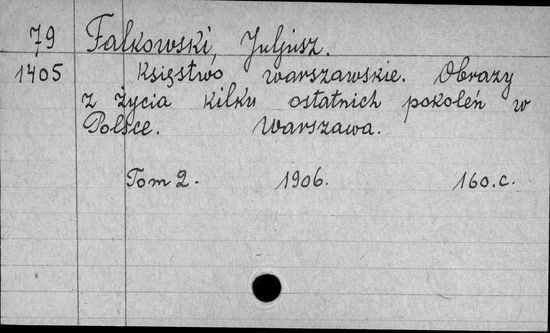 79 Falkowski, Juljusz.
1405 Księstwo warszawskie. Obrazy
z życia kilku ostatnich pokoleń w
Polsce. Warszawa.
Tom 2. 1906. 160.c.